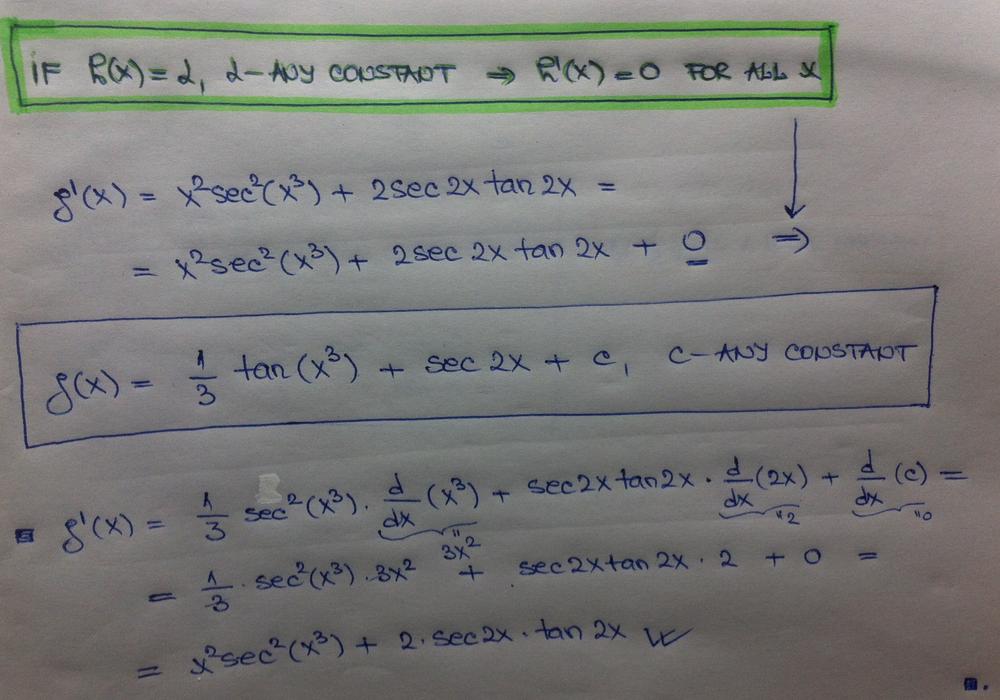 IF h(x) = α, α-ANY CONSTANT ⇒ h'(x) = 0 FOR ALL x
g'(x) = x²sec²(x³) + 2sec 2x tan 2x =
= x²sec²(x³) + 2sec 2x tan 2x + 0 ⇒
g(x) = 1/3 tan(x³) + sec 2x + c, C-ANY CONSTANT
g'(x) = 1/3 sec²(x³) · d/dx (x³) + sec2x tan2x · d/dx (2x) + d/dx (c) =
"3x² "2 "0
= 1/3 · sec²(x³) · 3x² + sec2x tan 2x · 2 + 0 =
= x²sec²(x³) + 2 · sec2x · tan 2x